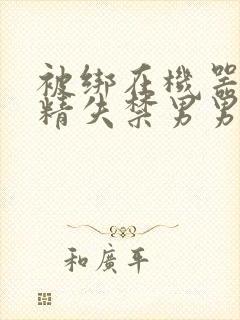 被绑在機器
精失禁男男
和廣平